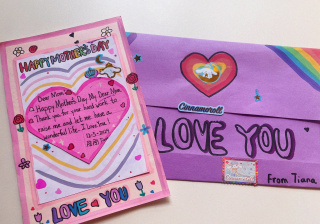 HAPPY MOTHER'S DAY
Dear Mom,
Happy Mother's Day My Dear Mom
Thank you for your hard work to
raise me and let me have a
wonderful life. I Love You!
12-5-2024
LOVE YOU
Cinnamoroll
LOVE YOU
From Tiana